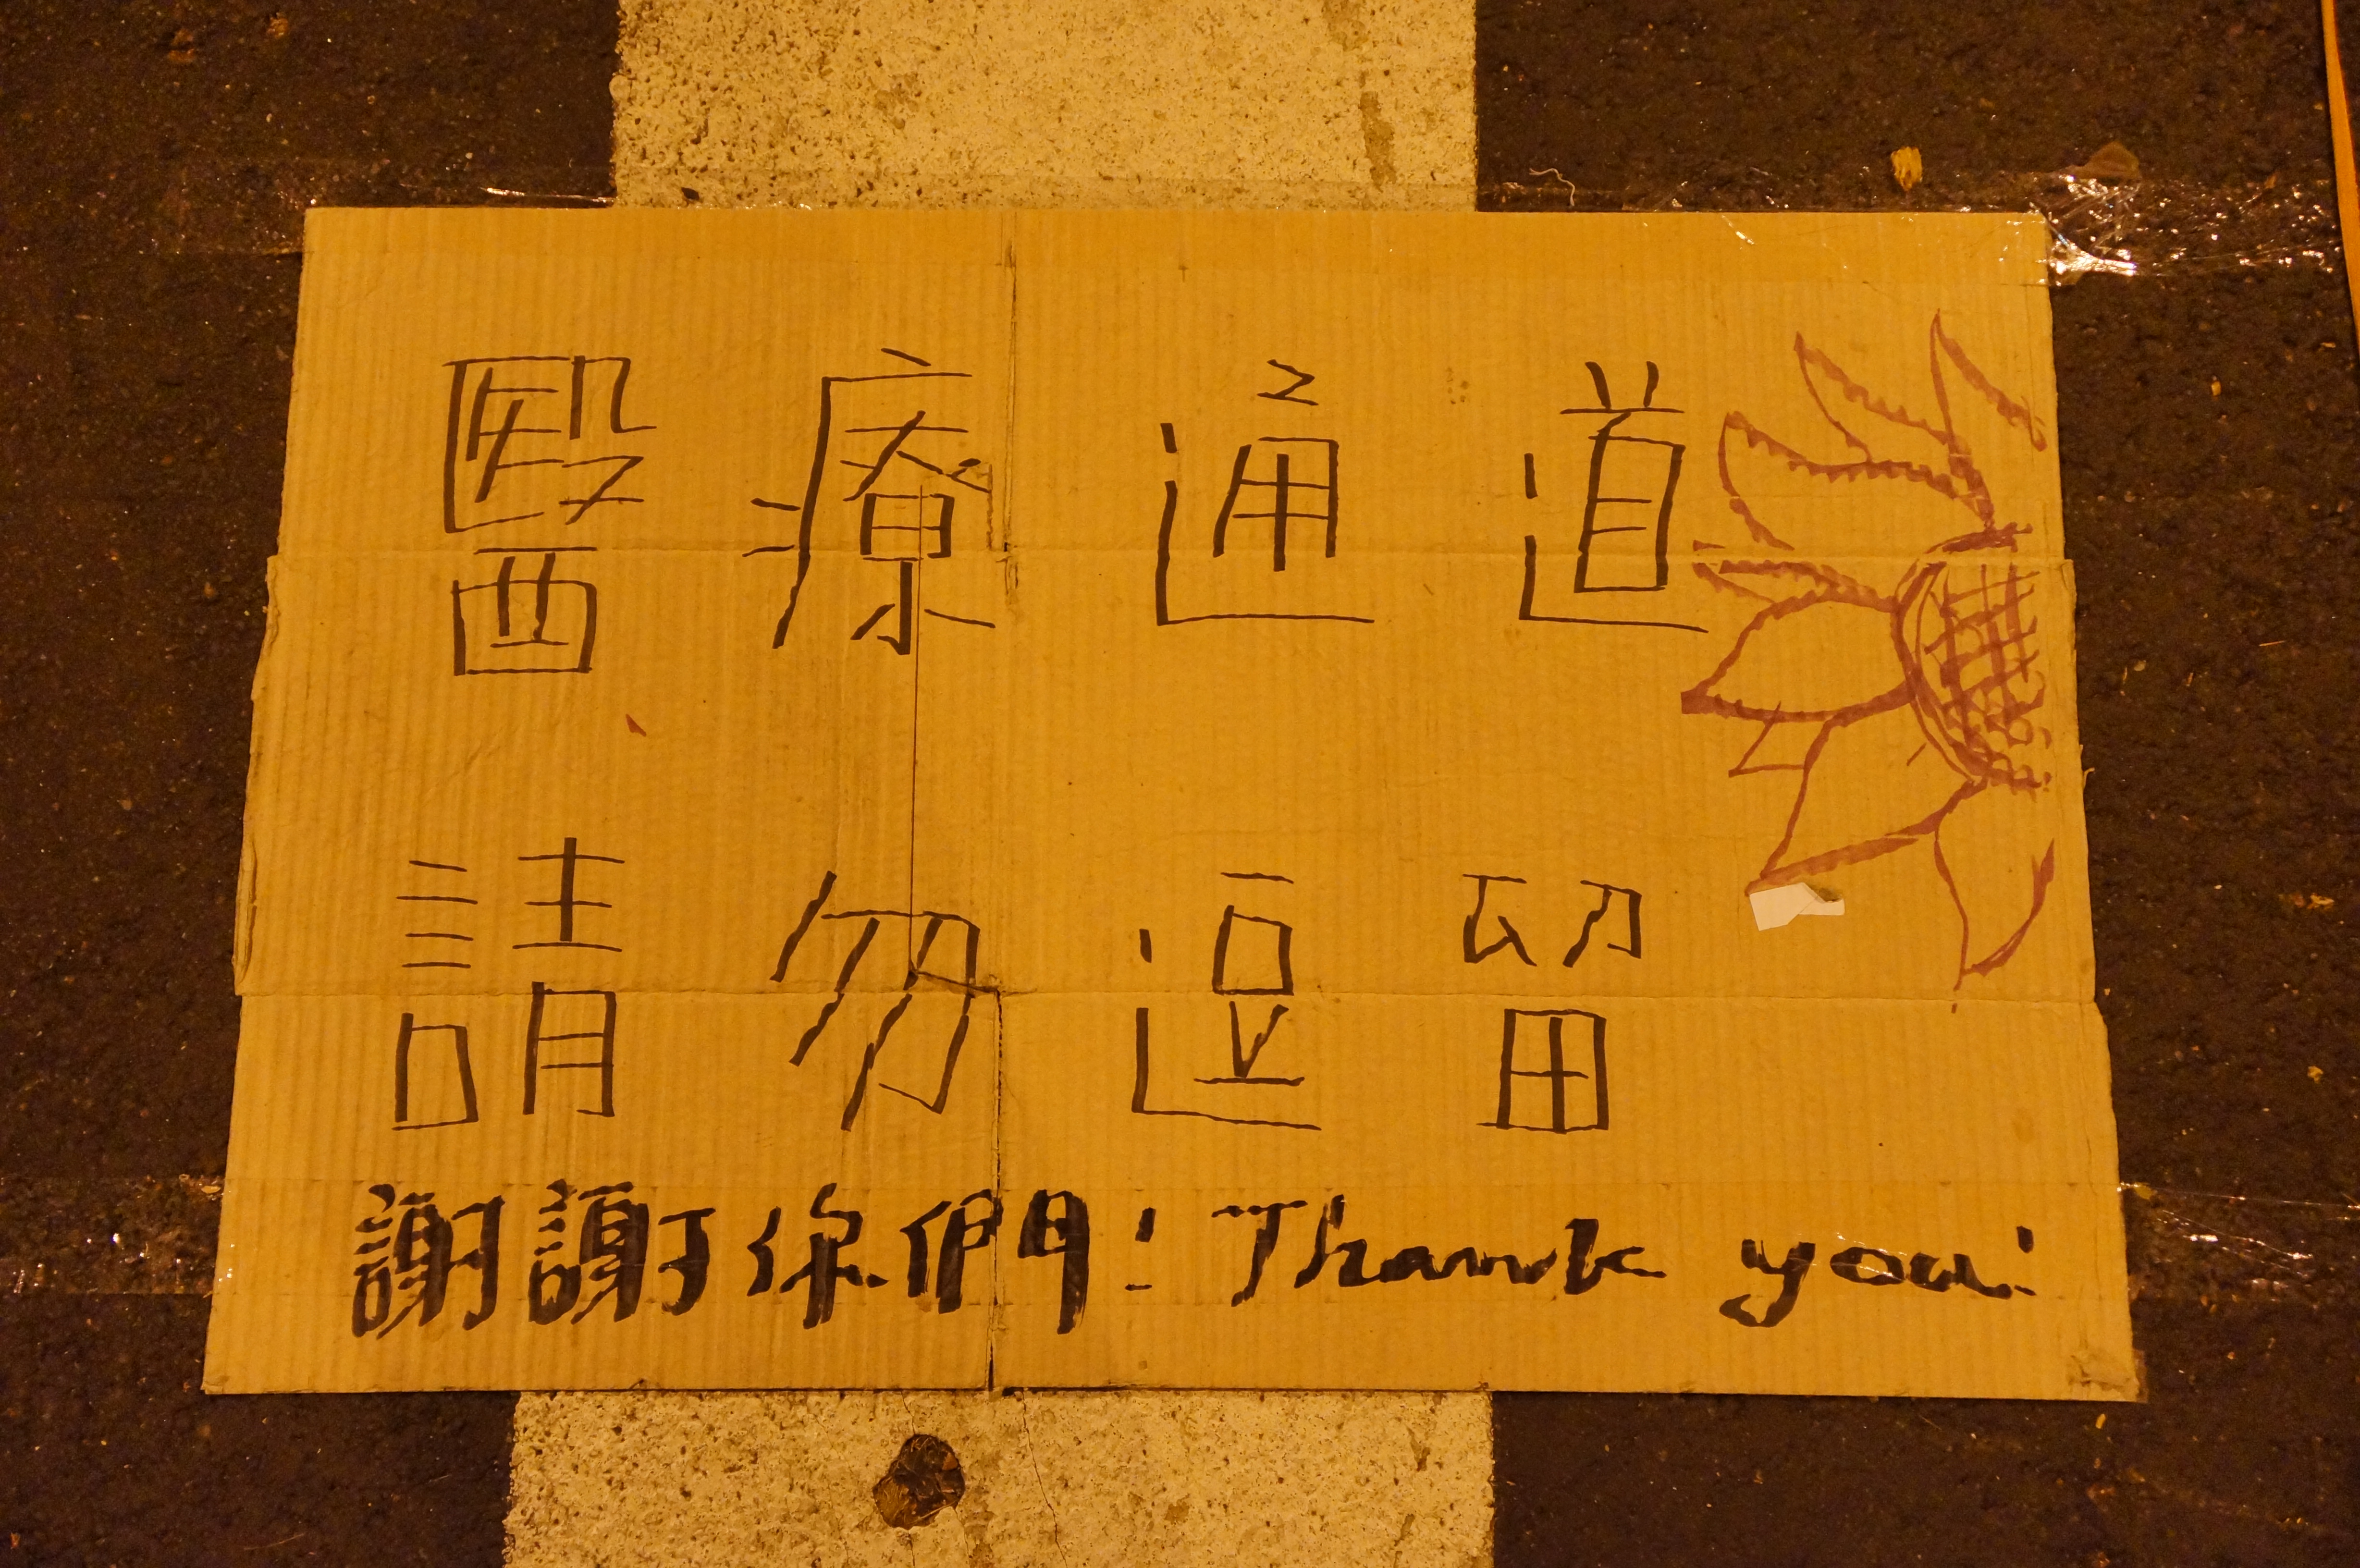 醫療通道
請勿逗留
謝謝你們! Thank you!